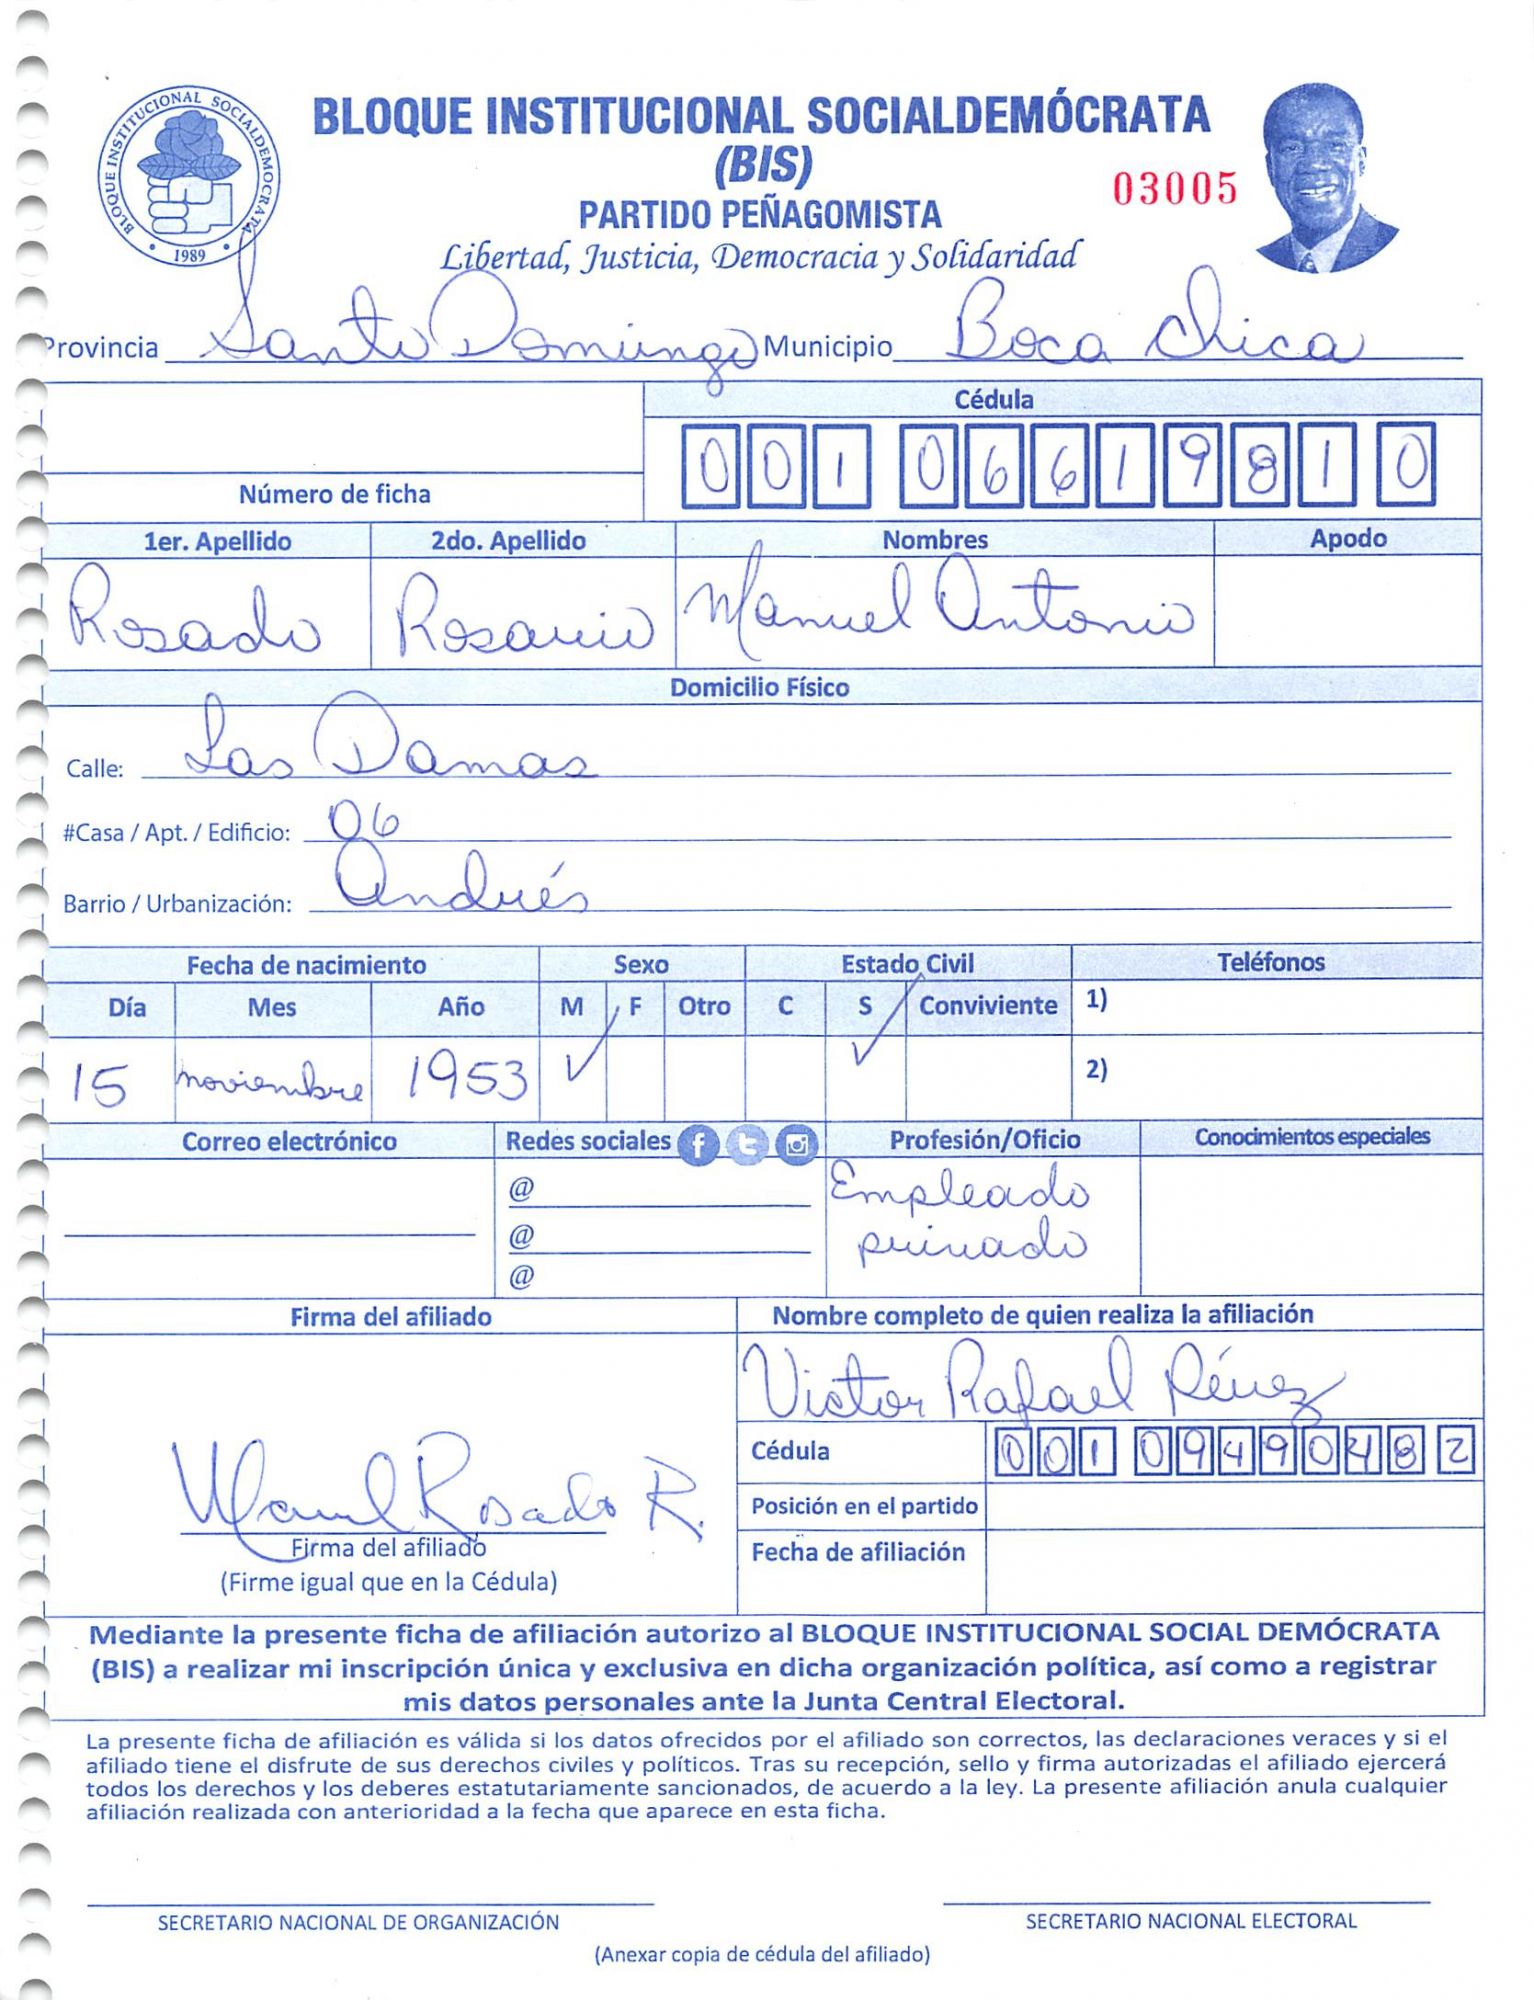 BLOQUE INSTITUCIONAL SOCIALDEMÓCRATA
BLOQUE INSTITUCIONAL SOCIALDEMOCRATA
1989
(BIS)
03005
PARTIDO PEÑAGOMISTA
Libertad, Justicia, Democracia y Solidaridad
Provincia Santo Domingo Municipio Boca Chica
Cédula
001 0661981 0
Número de ficha
1er. Apellido 2do. Apellido Nombres Apodo
Rosado Rosario Manuel Antonio
Domicilio Físico
Calle: Las Damas
#Casa / Apt. / Edificio: 06
Barrio / Urbanización: Andrés
Fecha de nacimiento Sexo Estado Civil Teléfonos
Día Mes Año M F Otro C S Conviviente 1)
15 noviembre 1953 ✓ ✓ 2)
Correo electrónico Redes sociales Profesión/Oficio Conocimientos especiales
@ Empleado
@ privado
@
Firma del afiliado Nombre completo de quien realiza la afiliación
Victor Rafael Pérez
Cédula 001 0949048 2
Manuel Rosado R.
Posición en el partido
Firma del afiliado
Fecha de afiliación
(Firme igual que en la Cédula)
Mediante la presente ficha de afiliación autorizo al BLOQUE INSTITUCIONAL SOCIAL DEMÓCRATA
(BIS) a realizar mi inscripción única y exclusiva en dicha organización política, así como a registrar
mis datos personales ante la Junta Central Electoral.
La presente ficha de afiliación es válida si los datos ofrecidos por el afiliado son correctos, las declaraciones veraces y si el
afiliado tiene el disfrute de sus derechos civiles y políticos. Tras su recepción, sello y firma autorizadas el afiliado ejercerá
todos los derechos y los deberes estatutariamente sancionados, de acuerdo a la ley. La presente afiliación anula cualquier
afiliación realizada con anterioridad a la fecha que aparece en esta ficha.
SECRETARIO NACIONAL DE ORGANIZACIÓN SECRETARIO NACIONAL ELECTORAL
(Anexar copia de cédula del afiliado)